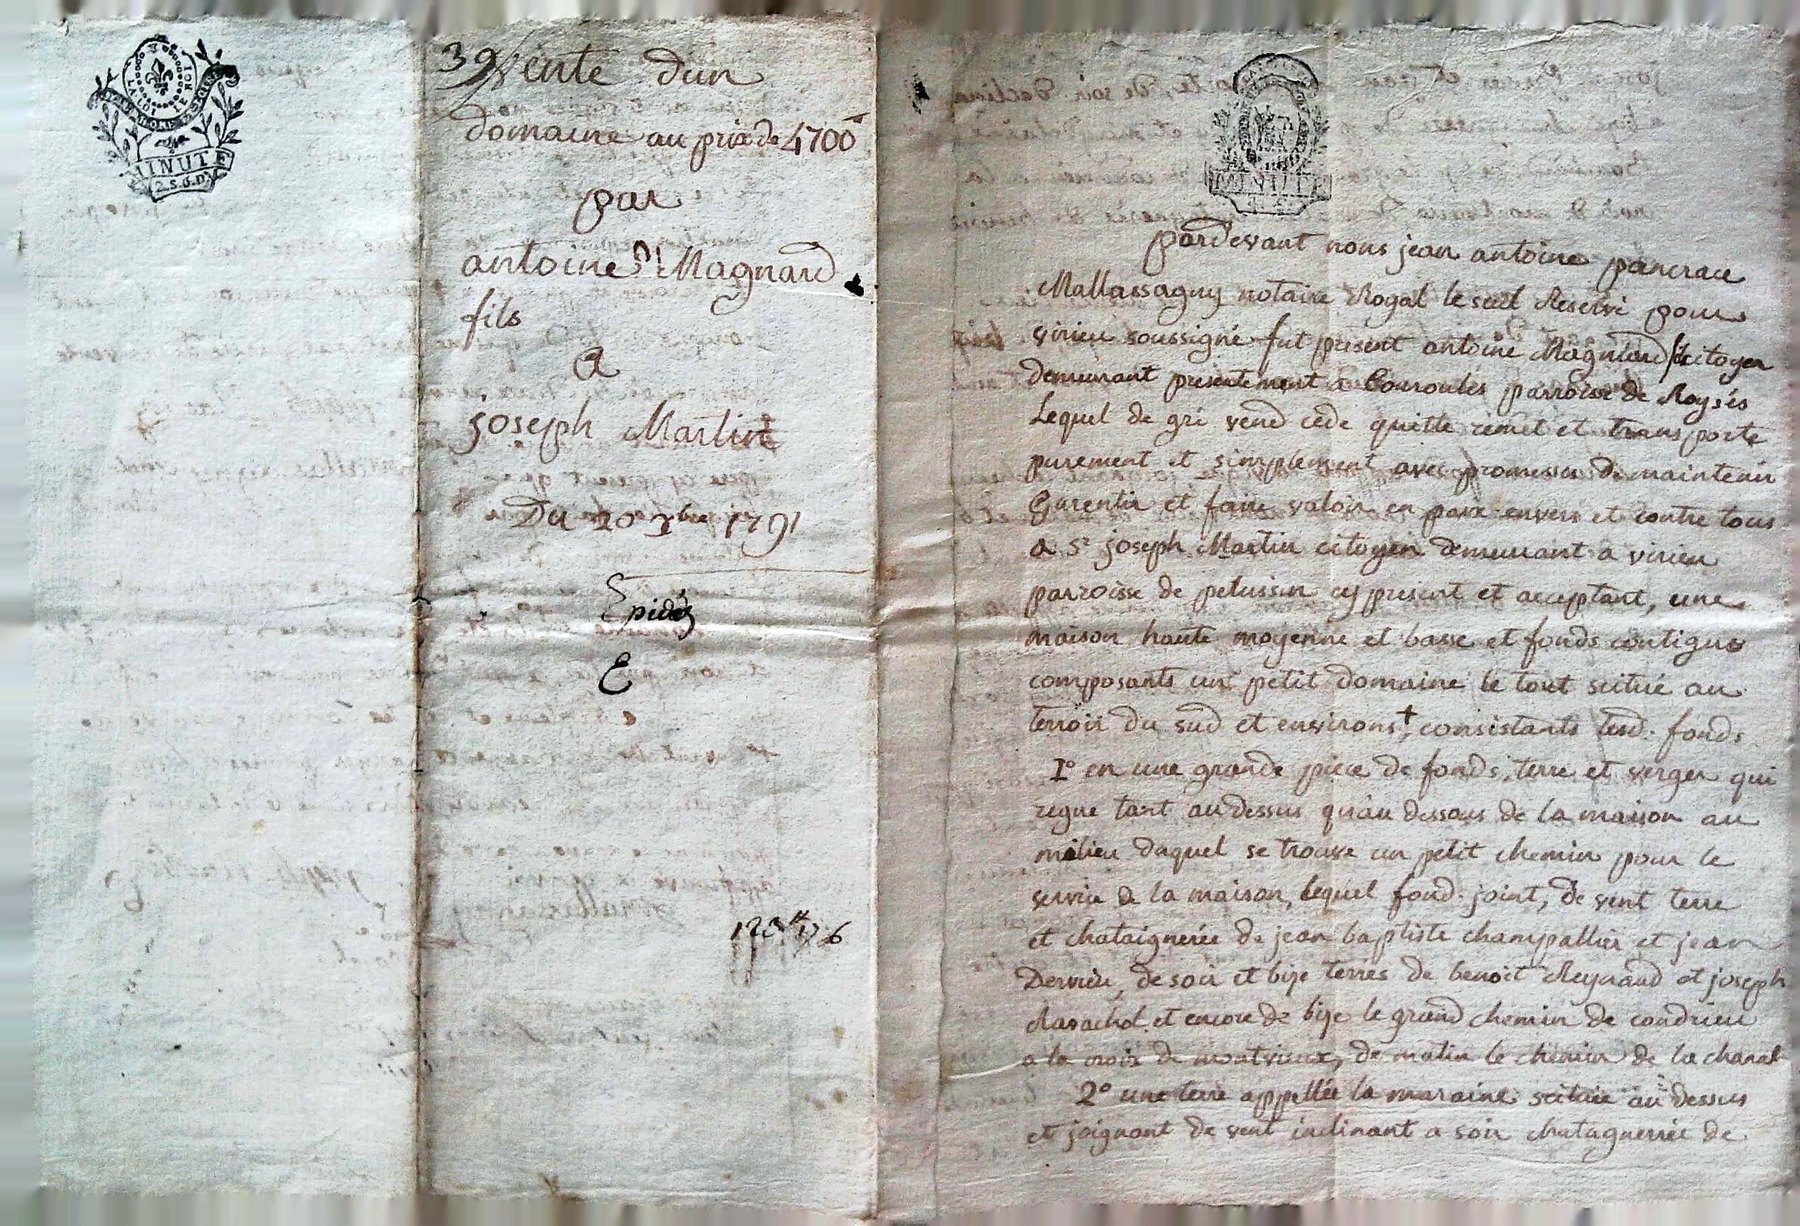 LA LOI ET LE ROI
MINUTE
2.S.6.D
39 Vente dun
domaine au prix de 4700
par
antoine Magnard
fils
a
joseph Martin
Du 20 xbre 1791
Expidée
E
MINUTE
pardevant nous jean antoine pancrace
Mallassagny notaire Royal le seul Reservé pour
virieu soussigné fut present antoine Magniard fils citoyen
demeurant presentement a Couroules parroisse de Roysés
Lequel de gré vend cede quitte remet et transporte
purement et simplement avec promesse de maintenir
Garentir et faire valoir en paix envers et contre tous
a Sr joseph Martin citoyen demeurant a virieu
parroisse de pelussin cy present et acceptant, une
maison haute moyenne et basse et fonds contigus
composants un petit domaine le tout scitué au
terroir du sud et environs +, consistants lesd. fonds
1º en une grande piece de fonds, terre et verger qui
regne tant au dessus qu'au dessous de la maison au
milieu duquel se trouve un petit chemin pour le
service de la maison, lequel fond joint, de vent terre
et chataignerée de jean baptiste champallier et jean
Dervieu, de soir et bize terres de benoit Reynaud et joseph
Ravachol et encore de bize le grand chemin de condrieu
a la croix de montvieux, de matin le chemin de la chanal
2º une terre appellée la maraine scituée au dessus
et joignant de vent inclinant a soir chataignerée de